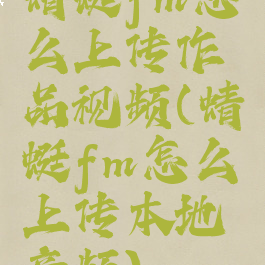 蜻蜓fm怎
么上传作
品视频(蜻
蜓fm怎么
上传本地
音频)